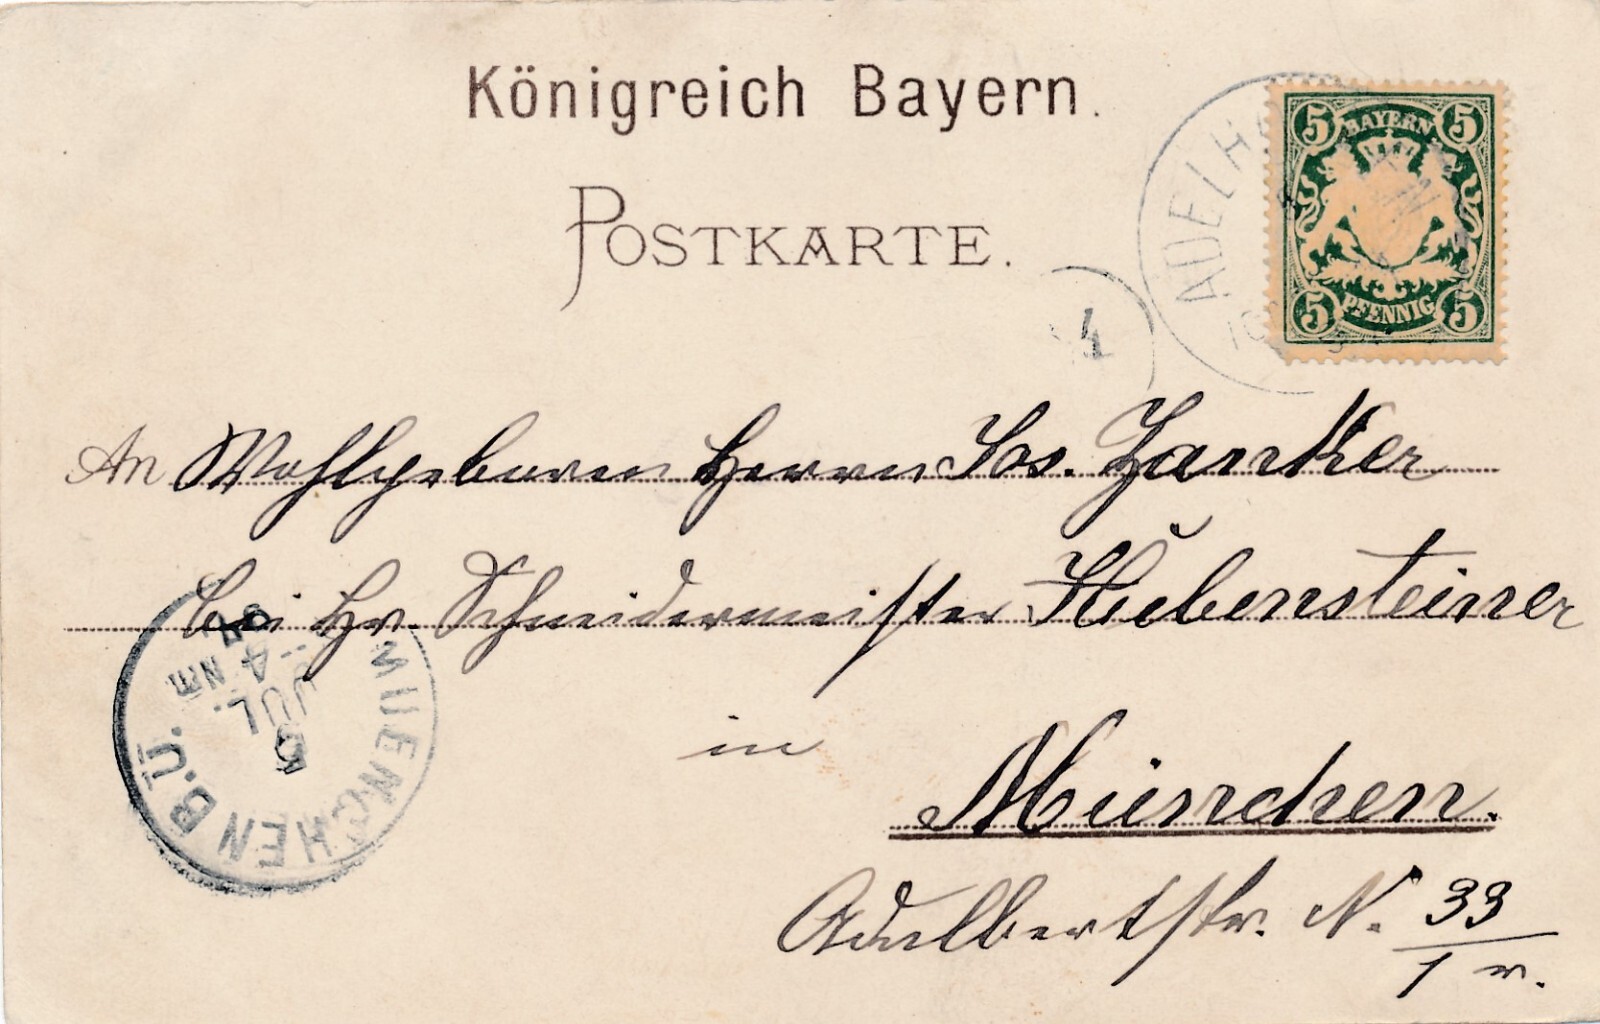 Königreich Bayern.
POSTKARTE.
5 BAYERN 5
5 PFENNIG 5
ADELH
4
An Wohlgeboren Herrn Jos. Zanker
bei Hr. Schneidermeister Huebensteiner
in
München.
Adalbertstr. N. 33
1 r.
MUENCHEN B.Ü.
5
JUL.
4 NM.